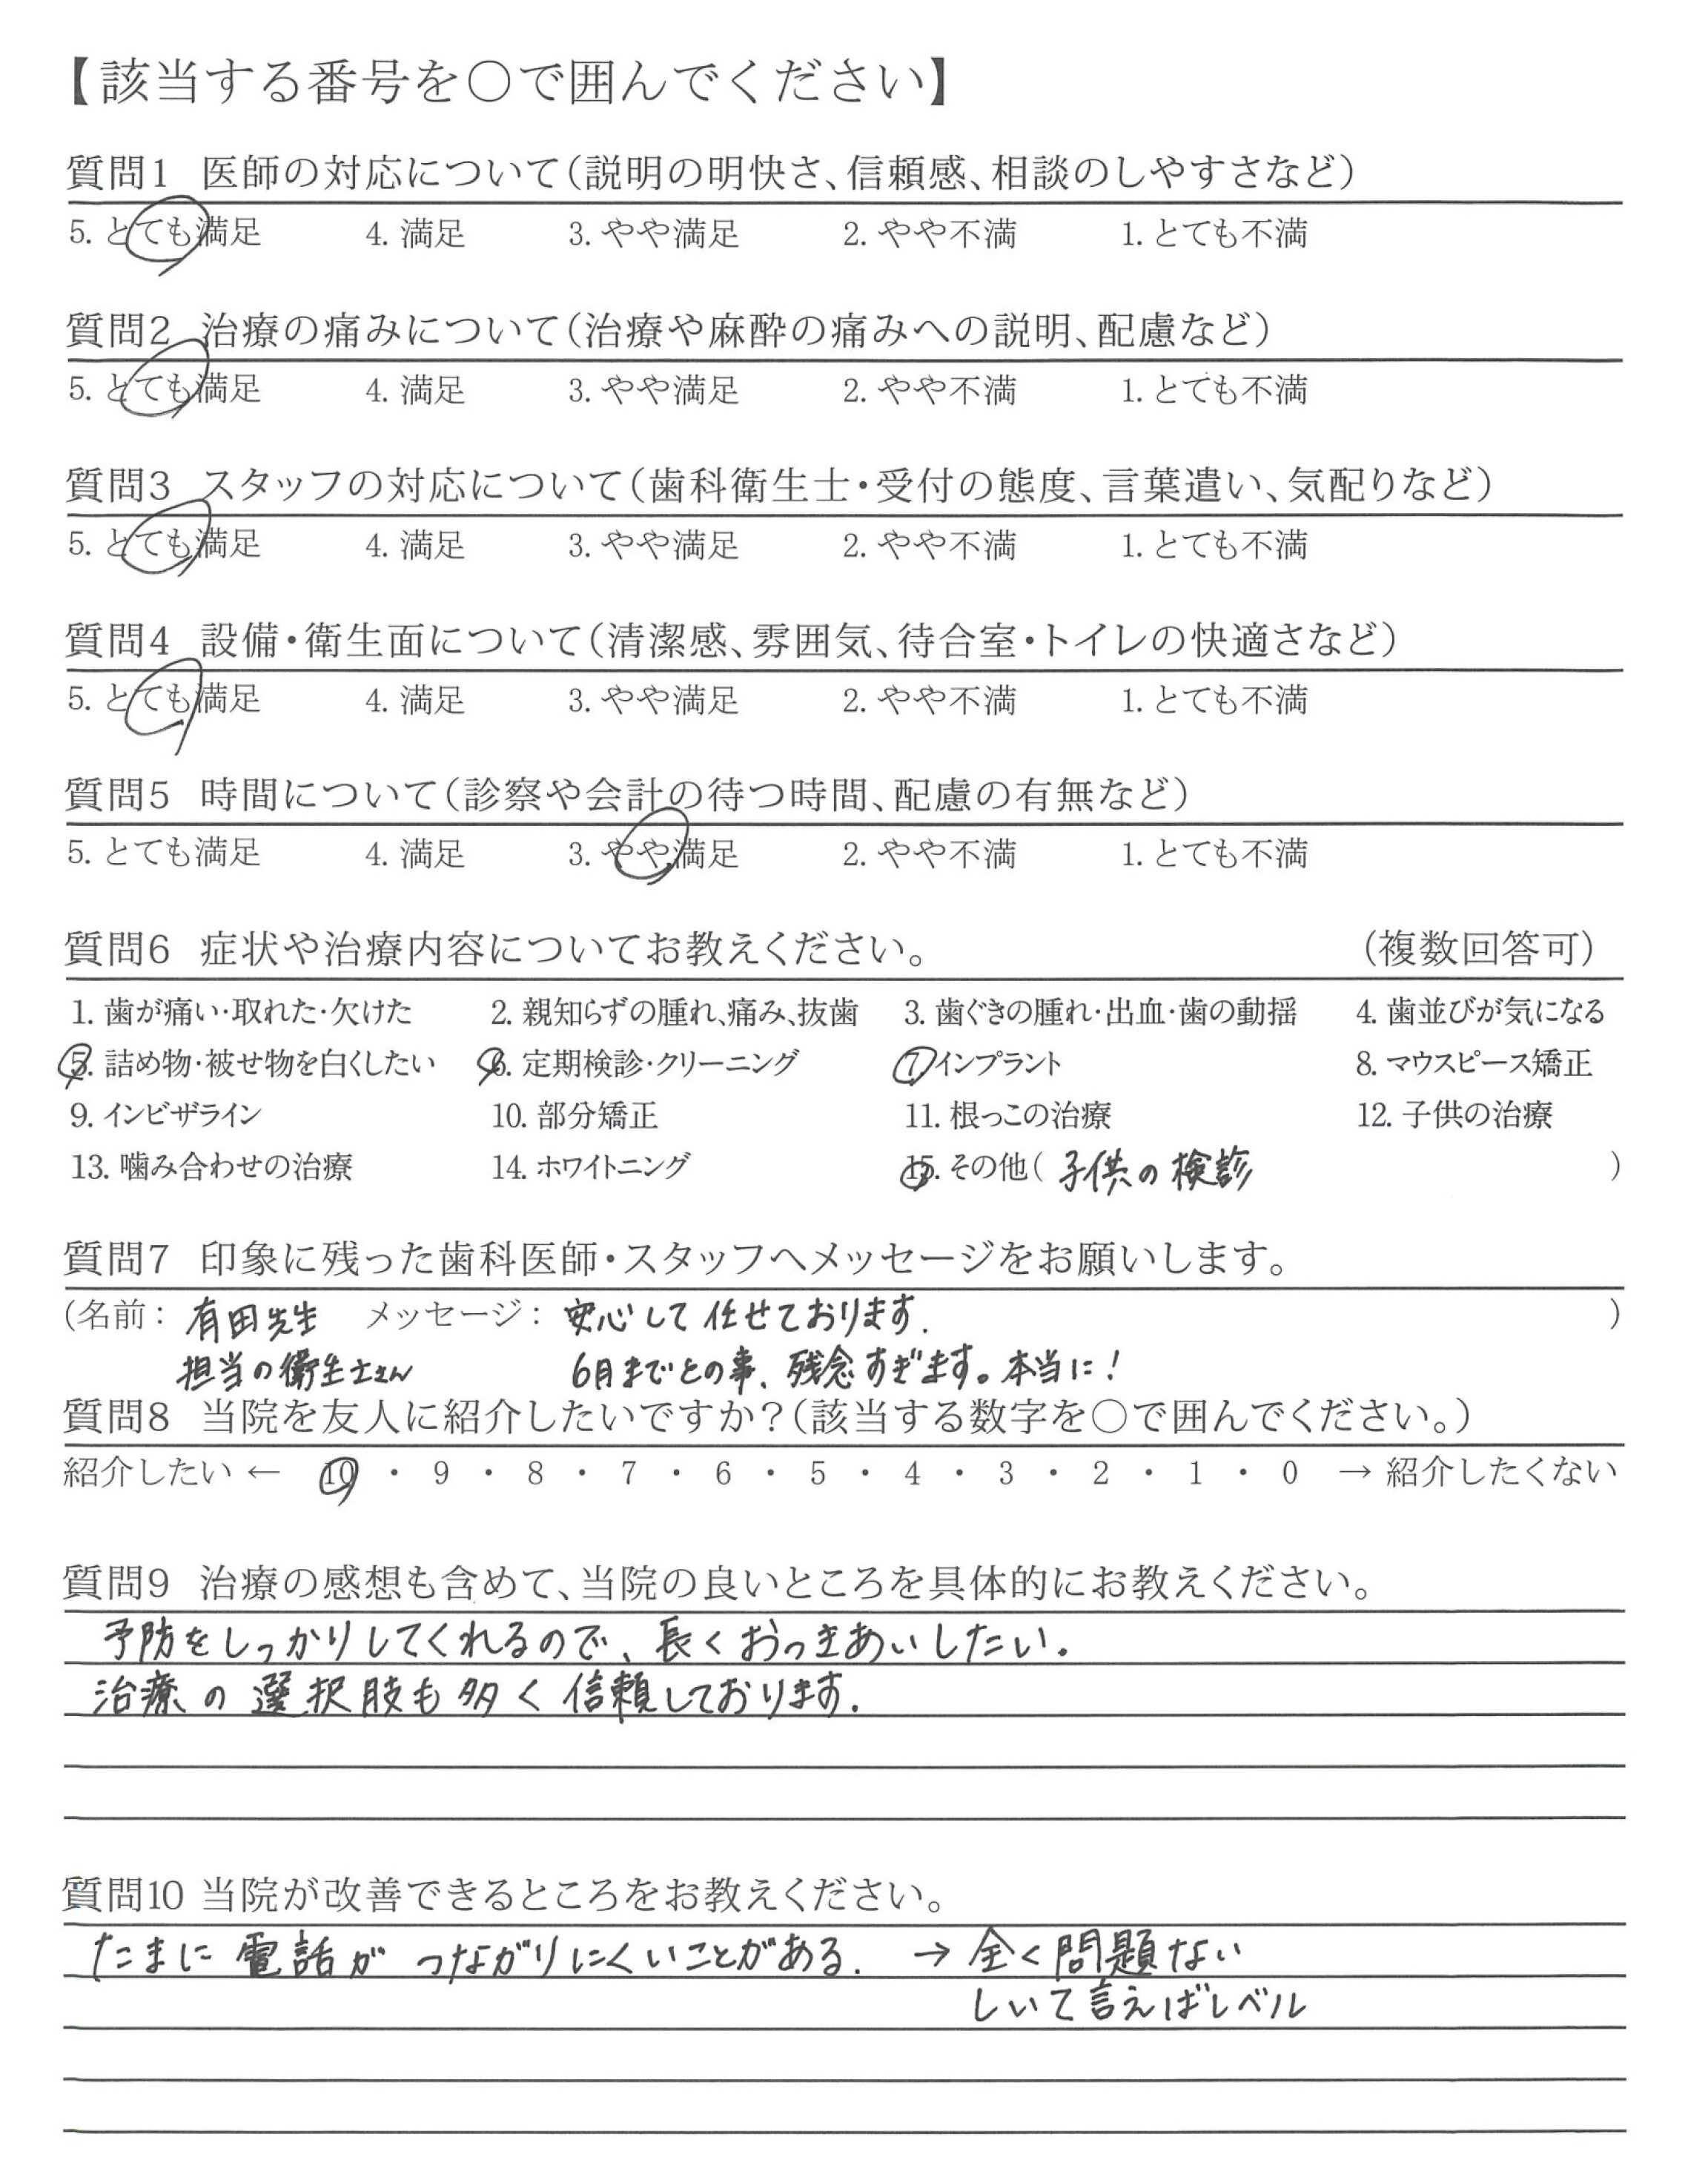 【該当する番号を○で囲んでください】
質問1 医師の対応について(説明の明快さ、信頼感、相談のしやすさなど)
5. とても満足 4. 満足 3. やや満足 2. やや不満 1. とても不満
質問2 治療の痛みについて(治療や麻酔の痛みへの説明、配慮など)
5. とても満足 4. 満足 3. やや満足 2. やや不満 1. とても不満
質問3 スタッフの対応について(歯科衛生士・受付の態度、言葉遣い、気配りなど)
5. とても満足 4. 満足 3. やや満足 2. やや不満 1. とても不満
質問4 設備・衛生面について(清潔感、雰囲気、待合室・トイレの快適さなど)
5. とても満足 4. 満足 3. やや満足 2. やや不満 1. とても不満
質問5 時間について(診察や会計の待つ時間、配慮の有無など)
5. とても満足 4. 満足 3. やや満足 2. やや不満 1. とても不満
質問6 症状や治療内容についてお教えください。 (複数回答可)
1. 歯が痛い・取れた・欠けた 2. 親知らずの腫れ、痛み、抜歯 3. 歯ぐきの腫れ・出血・歯の動揺 4. 歯並びが気になる
5. 詰め物・被せ物を白くしたい 6. 定期検診・クリーニング 7. インプラント 8. マウスピース矯正
9. インビザライン 10. 部分矯正 11. 根っこの治療 12. 子供の治療
13. 噛み合わせの治療 14. ホワイトニング 15. その他( 子供の検診 )
質問7 印象に残った歯科医師・スタッフへメッセージをお願いします。
(名前： 有田先生 メッセージ： 安心して任せております. )
担当の衛生士さん 6月までとの事、残念すぎます。本当に！
質問8 当院を友人に紹介したいですか？(該当する数字を○で囲んでください。)
紹介したい ← 10 ・ 9 ・ 8 ・ 7 ・ 6 ・ 5 ・ 4 ・ 3 ・ 2 ・ 1 ・ 0 → 紹介したくない
質問9 治療の感想も含めて、当院の良いところを具体的にお教えください。
予防をしっかりしてくれるので、長くおつきあいしたい。
治療の選択肢も多く信頼しております.
質問10 当院が改善できるところをお教えください。
たまに電話がつながりにくいことがある. → 全く問題ない
しいて言えばレベル